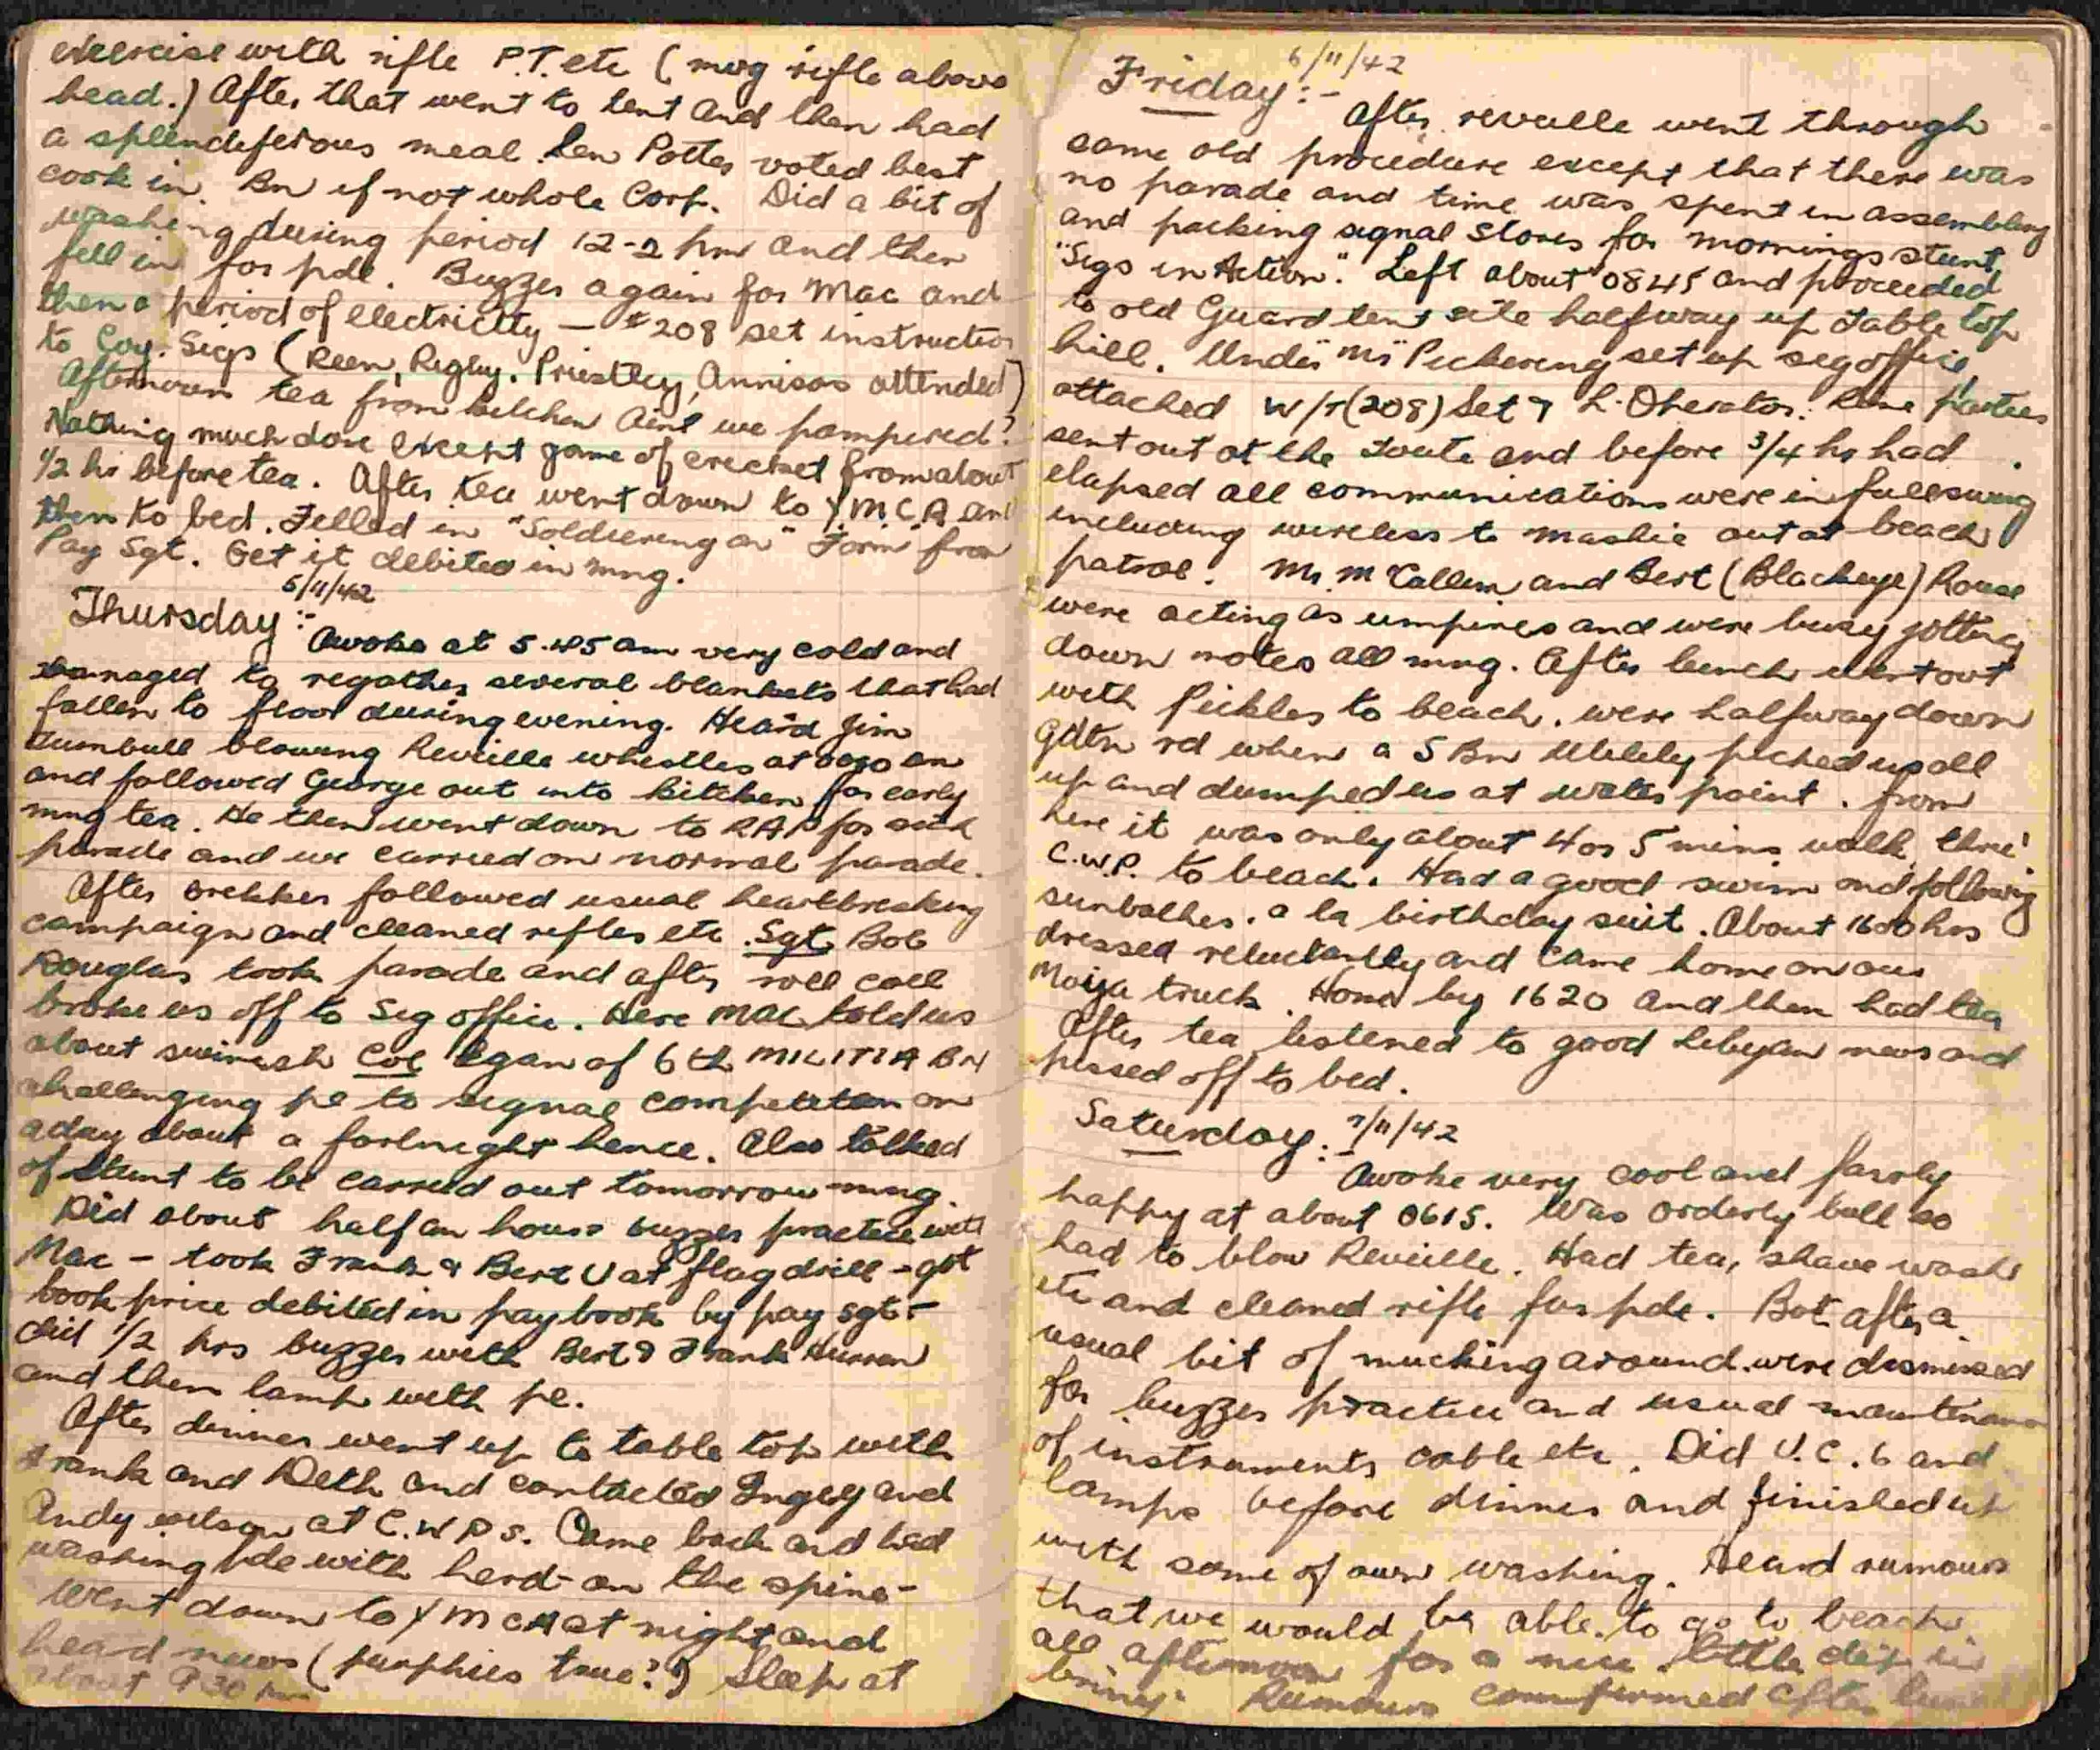 exercise with rifle P.T. etc (mug rifle above
head.) After that went to tent and then had
a splendiferous meal. Len Potter voted best
cook in Bn if not whole Corp. Did a bit of
washing during period 12-2 pm and then
fell in for pde. Buzzer again for Mac and
then a period of electricity — #208 set instruction
to Coy. Sigs (Keen, Rigby, Priestley, Annison attended)
Afternoon tea from kitchen Aint we pampered?
Nothing much done except game of cricket from about
1/2 hr before tea. After tea went down to Y.M.C.A and
then to bed. Filled in "Soldiering on" Form from
Pay Sgt. Get it debited in mng.
5/11/42
Thursday:-
Awoke at 5.45 am very cold and
managed to regather several blankets that had
fallen to floor during evening. Heard Jim
Turnbull blowing Reveille whistles at am
and followed George out into kitchen for early
mng tea. He then went down to RAP for sick
parade and we carried on normal parade.
After brekker followed usual heartbreaking
campaign and cleaned rifles etc. Sgt Bob
Douglas took parade and after roll call
broke us off to Sig office. Here Mac told us
about swinish Col Egan of 6th MILITIA BN
challenging pl to signal competition on
a day about a fortnight hence. Also talked
of stunt to be carried out tomorrow mng.
Did about half an hour buzzer practice with
Mac - took Frank & Bert U at flag drill - got
book price debited in paybook by pay sgt -
did 1/2 hrs buzzer with Bert & Frank
and then lamp with pl.
After dinner went up to table top with
Frank and Keth and contacted and
Andy Wilson at C.W.P.S. Came back and had
washing pde with herd - on the spine -
went down to YMCA at night and
heard news (furphies true?) Sleep at
about 9 30 pm
6/11/42
Friday:-
After reveille went through
same old procedure except that there was
no parade and time was spent in assembling
and packing signal stores for mornings stunt,
"Sigs in Action". Left about 0845 and proceeded
to old Guard tent site halfway up Table top
hill. Under "Mr" Pickering set up sig office,
attached W/T (208) Set & L. Operator: Line parties
sent out at the toute and before 3/4 hr had
elapsed all communications were in full swing
including wireless to Mashie out at beach
patrol. Mr McCallum and Bert (Blackeye) Rouse
were acting as umpires and were busy jotting
down notes all mng. After lunch went out
with Pickles to beach. were halfway down
Gdtn rd when a 5 Bn Utility picked us all
up and dumped us at water point. from
here it was only about 4 or 5 mins walk thro'
C.W.P. to beach. Had a good swim and following
sunbathes. a la birthday suit. About 1600 hrs
dressed reluctantly and came home on our
truck. Home by 1620 and then had tea
After tea listened to good Libyan news and
pissed off to bed.
Saturday:- 7/11/42
Awoke very cool and fairly
happy at about 0615. Was orderly bull so
had to blow Reveille. Had tea, shave wash
etc and cleaned rifle for pde. Bot after a
usual bit of mucking around were dismissed
for buzzer practice and usual maintenance
of instruments cable etc. Did U.C. 6 and
lamps before dinner and finished up
with some of own washing. Heard rumours
that we would be able to go to beach
all afternoon for a nice little dip in
briney. Rumours comfirmed after lunch